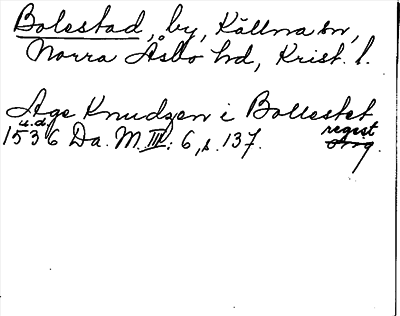 Bolestad, by, Källna sn,
Norra Åsbo hd, Krist. l.
Age Knudzen i Bollestet
u.d.
1536 Da. M. III: 6, s. 137. regist
orig.